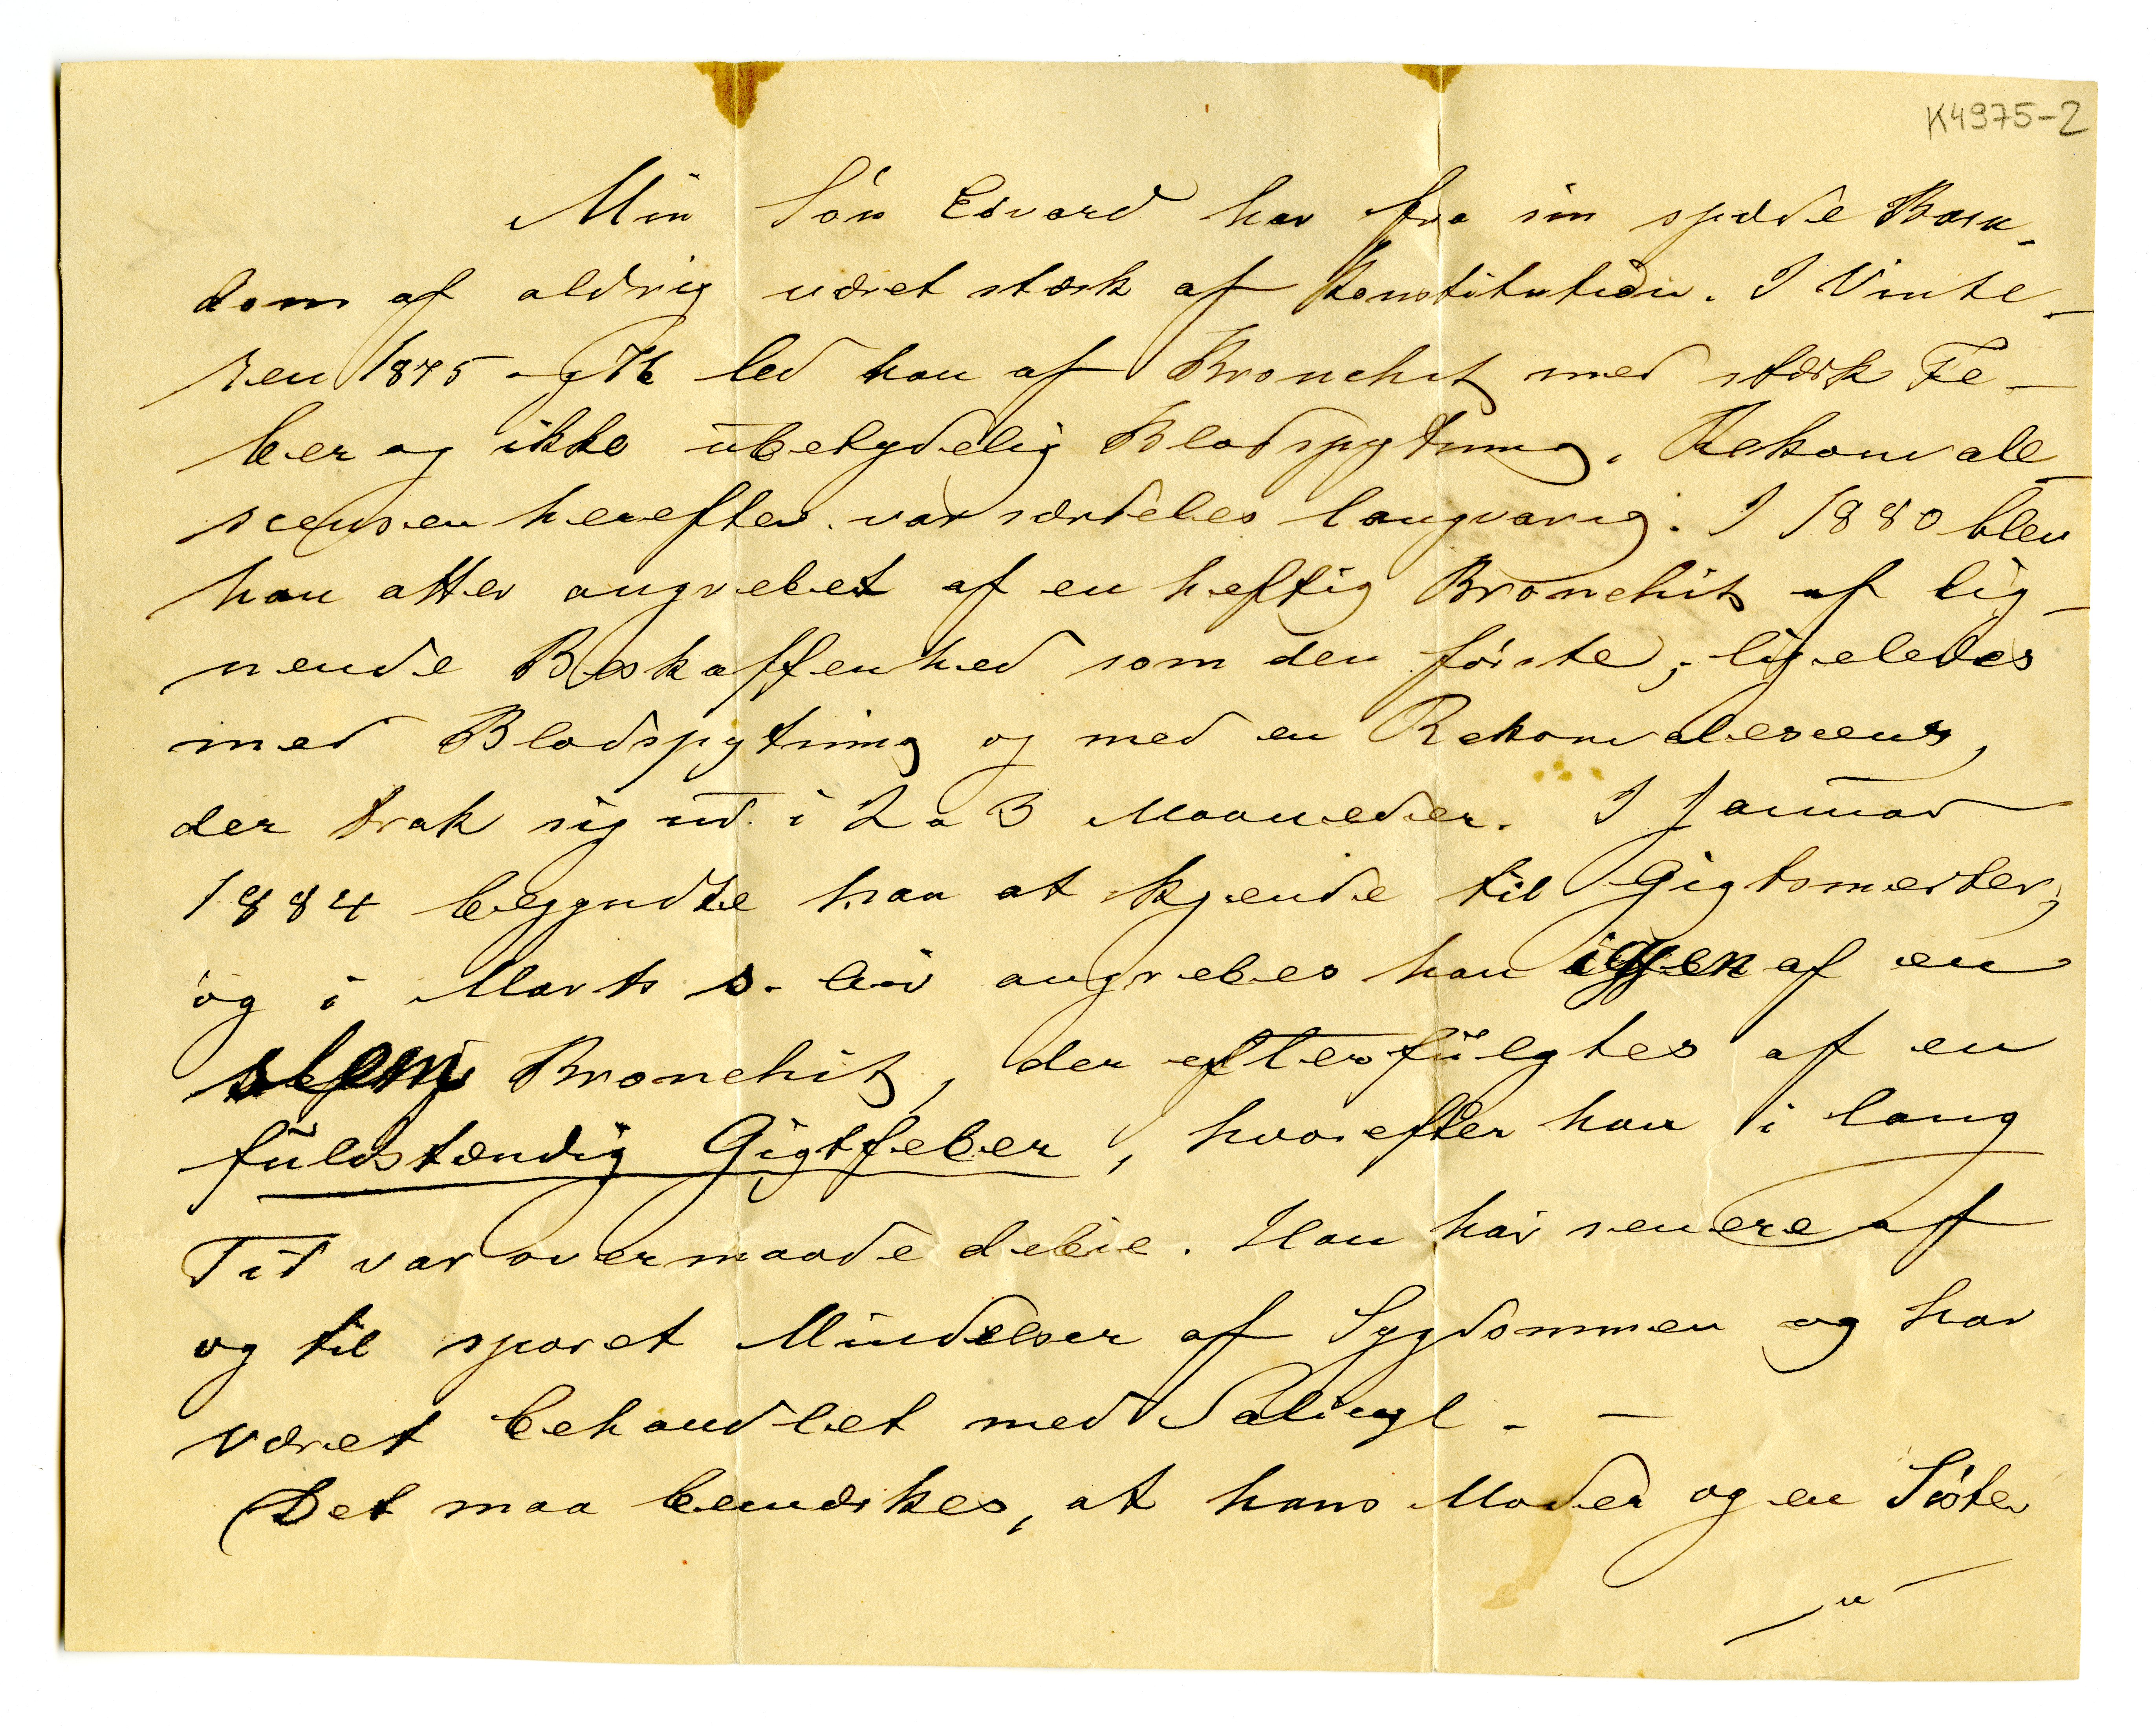 K4975-2
Min Sön Edvard har fra sin spæde Barn-
dom af aldrig været stærk af Konstitution. I Vinte-
ren 1875-76 led han af Bronchit med stærk Fe-
ber og ikke ubetydelig Blodspytning. Rekonvale
scensen herefter var særdeles langvarig. I 1880 blev
han atter angrebet af en heftig Bronchit af lig-
nende Beskaffenhed som den förste; ligeledes
med Blodspytning og med en Rekonvalescens,
der trak sig ud i 2 a 3 Maaneder. I Januar
1884 begyndte han at kjende til Gigtsmerter;
og i Marts s. Aar angrebes han igjen af en
slem Bronchit, der efterfulgtes af en
fuldstændig Gigtfeber, hvorefter han i lang
Tid var overmaade debil. Han har senere af
og til sporet Mindelser af Sygdommen og har
været behandlet med Salicyl. —
Det maa bemærkes, at hans Moder og en Söster